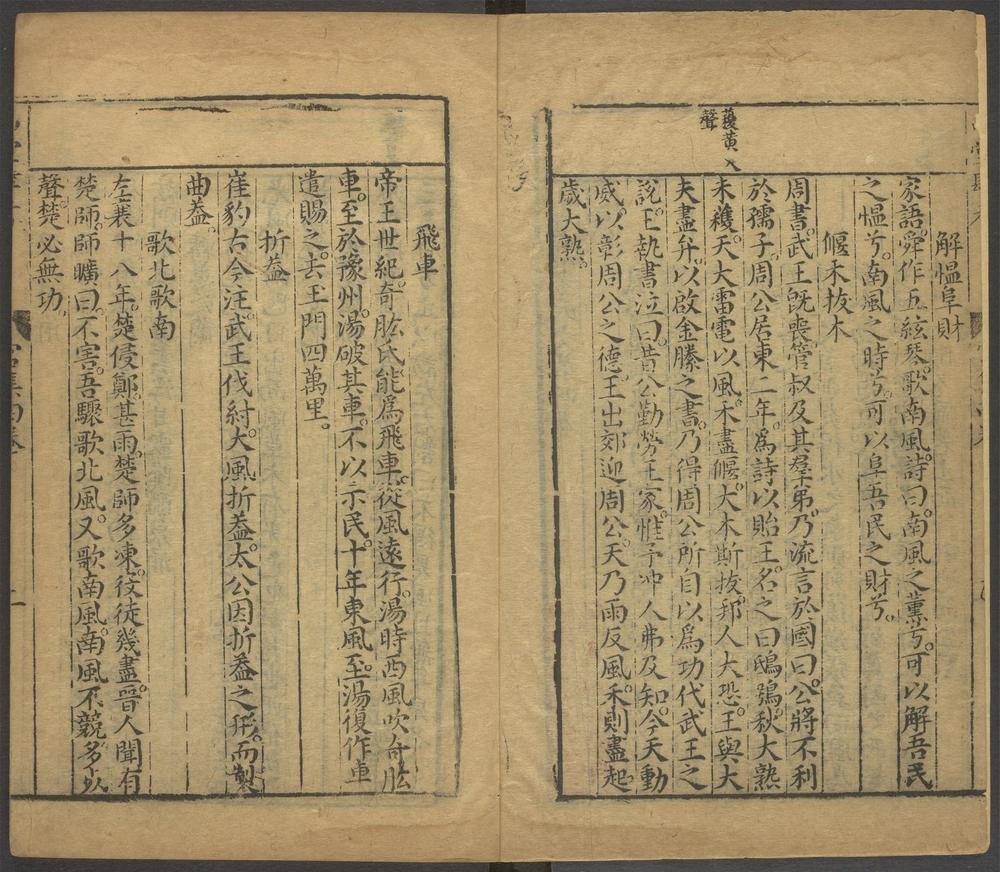 解愠阜財
家語。舜作五絃琴。歌南風。詩曰。南風之薰兮。可以解吾民
之愠兮。南風之時兮。可以阜吾民之財兮。
偃禾拔木
周書。武王旣喪。管叔及其羣弟。乃流言於國曰。公將不利
於孺子。周公居東二年。爲詩以貽王。名之曰鴟鴞。秋大熟
未穫。天大雷電以風。禾盡偃。大木斯拔。邦人大恐。王與大
穫黃入
聲
夫盡弁。以啟金縢之書。乃得周公所自以爲功代武王之
說。王執書泣曰。昔公勤勞王家。惟予冲人弗及知。今天動
威。以彰周公之德。王出郊迎周公。天乃雨反風。禾則盡起。
歲大熟。
飛車
帝王世紀。奇肱氏能爲飛車。從風遠行。湯時西風吹奇肱
車。至於豫州。湯破其車。不以示民。十年東風至。湯復作車
遣賜之。去玉門四萬里。
折葢
崔豹古今注。武王伐紂。大風折葢。太公因折葢之形。而製
曲葢。
歌北歌南
左襄十八年。楚侵鄭。甚雨。楚師多凍。役徒幾盡。晉人聞有
楚師。師曠曰。不害。吾驟歌北風。又歌南風。南風不競。多死
聲。楚必無功。